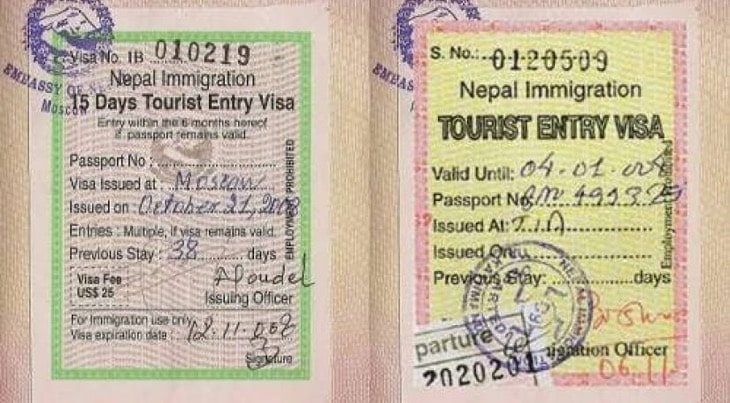 EMBASSY OF
Moscow
Visa No. 1B 010219
Nepal Immigration
15 Days Tourist Entry Visa
Entry within the 6 months hereof
if passport remains valid.
Passport No :
Visa Issued at : Moscow
Issued on October 21, 2008
Entries : Multiple, if visa remains valid.
Previous Stay : 38 days
EMPLOYMENT PROHIBITED
Visa Fee
US$ 25
Apoudel
Issuing Officer
For Immigration use only
Visa expiration date : 12.11.008
Signature
S. No.: 0120509
Nepal Immigration
TOURIST ENTRY VISA
Valid Until: 04.01.009
Passport No.
Issued At: T.I.A
Issued On:
Previous Stay: days
Employment Prohibited
parture
2020201
Immigration Officer
06.11